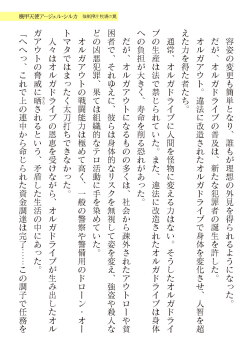 機甲天使アージェル・シルカ
容姿の変更も簡単となり、誰もが理想の外見を得られるようになった。
だが、オルガドライブの普及は、新たな犯罪者の誕生を許した。
オルガアウト。違法に改造されたオルガドライブで身体を変化させ、人智を超
えた力を得た者たち。
通常、オルガドライブに人間を怪物に変える力はない。そうしたオルガドライ
ブの生産は法で禁じられていた。また、違法に改造されたオルガドライブは身体
への負担が大きく、寿命を削る恐れがあった。
だが、オルガアウトになるものの多くは、社会から疎外されたアウトローや貧
困者で、それゆえに、彼らは身体的なリスクを無視して姿を変え、強盗や殺人な
どの凶悪犯罪、果ては組織的なテロ活動に手を染めていた。
オルガアウトの戦闘能力は極めて高く、一般の警察や警備用のドローン・オー
トマタではまったく太刀打ちできなかった。
人々はオルガドライブの恩恵を受けながら、オルガドライブが生み出したオル
ガアウトの脅威に晒されるという、矛盾した生活の中にあった。
「へへっ、これで上の連中から命じられた資金調達は完了……この調子で任務を